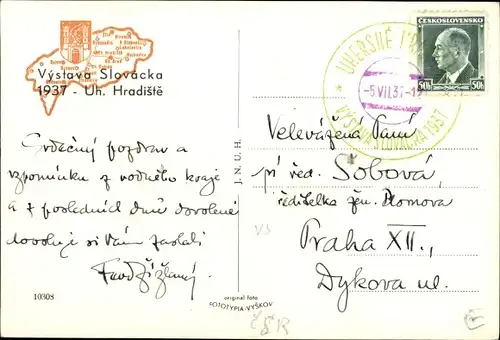 Výstava Slovácka
1937 - Uh. Hradiště
Srdečný pozdrav a
vzpomínku z rodného kraje
a z posledních dnů dovolené
dovoluje si Vám zaslati
10308
J. N. U. H.
original foto
FOTOTYPIA-VYŠKOV
ČSR
UHERSKÉ
-5.VII.37.-1
VÝSTAVA SLOVÁCKA 1937
ČESKOSLOVENSKO
50h 50h
Velevážená Paní
pí řed. Šobová,
ředitelka žen. Domova
Praha XII.,
Dykova ul.
VS